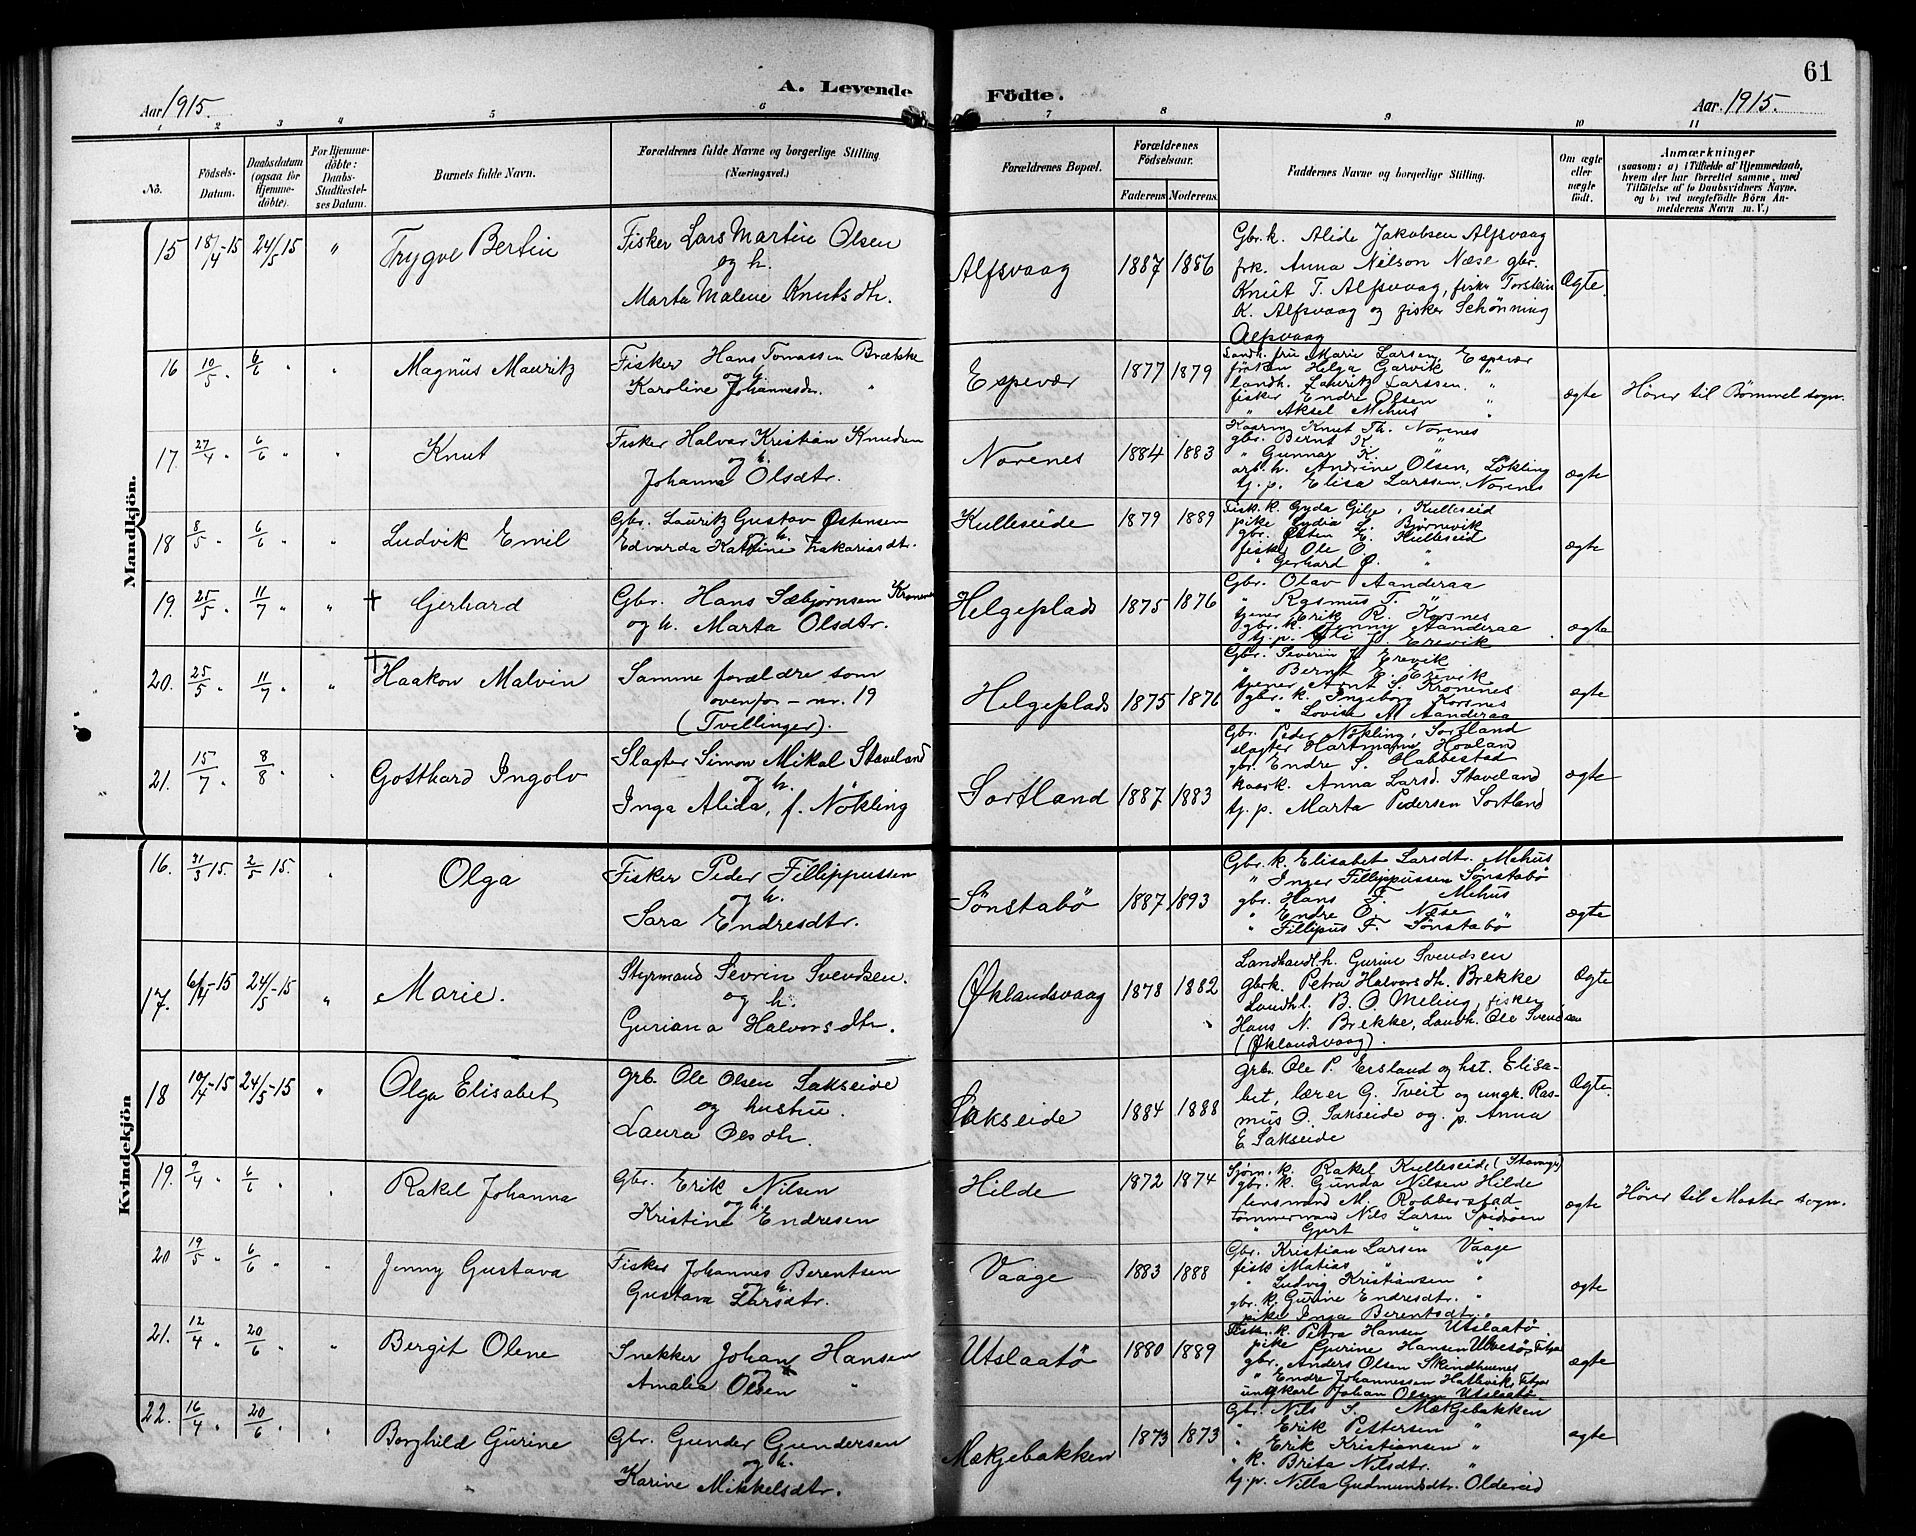 61
A. Levende Födte.
Aar 1915.
Aar 1915.
1 2 3 4 5 6 7 8 9 10 11
No.
Födsels-Datum.
Daabsdatum (ogsaa for Hjemmedöbte).
For Hjemmedöbte: Daabs-Stadfestelses Datum.
Barnets fulde Navn.
Forældrenes fulde Navne og borgerlige Stilling.
(Næringsvei.)
Forældrenes Bopæl.
Forældrenes Födselsaar.
Faderens Moderens
Faddernes Navne og borgerlige Stilling.
Om ægte eller uægte födt.
Anmærkninger
(saasom: a) i Tilfælde af Hjemmedaab,
hvem der har forrettet samme, med
Tilföielse af to Daabsvidners Navne,
og b) ved uægtefödte Börn Anmelderens Navn m. V.)
Mandkjön.
15 18/4-15 24/5 15 " Trygve Bertin
Fisker Lars Martin Olsen
og h.
Marta Malene Knutsdtr.
Alfsvaag 1887 1886
Gbr.k. Alide Jakobsen Alfsvaag
frk. Anna Nilson Næse gbr.
Knut T. Alfsvaag, fisker Torstein
K. Alfsvaag og fisker Schönning
Alfsvaag
Ægte.
16 10/5 " 6/6 " " Magnus Mauritz
Fisker Hans Tomassen Brætske
og h.
Karoline Johannesdr. "
Espevær 1877 1879
Landh. fru Marie Larsen, Espevær
fröken Helga Garvik "
landh. Lauritz Larssen. "
fisker Endre Olsen "
" Aksel Mehus "
ægte
Hörer til Bömmel sogn.
17. 27/4 " 6/6 " " Knut
Fisker Halvor Kristian Knudsen
og h.
Johanna Olsdtr.
Norenes 1884 1883
Kaarm. Knut Th. Norenes
gbr. Bernt K. "
" Gunnar K.
arb. h. Andrine Olsen, Lökling
tj. p. Elisa Larssen, Norenes
ægte
18 8/5 " 6/6 " " Ludvik Emil
Gbr. Lauritz Gustav Östensen
og h.
Edvarda Katrine Zakariasdt.
Kulleseide 1879 1889
Fisk.k. Gyda Gilje, Kulleseid
pike Lydia L. Björnevik
gbr. Östen E. Kulleseid
fisker Ole O. "
" Gerhard Ö. "
ægte
19. 25/5 " 11/7 " " † Gerhard
Gbr. Hans Sæbjörnsen Kronenes
og h. Marta Olsdtr.
Helgeplads 1875 1876
Gbr. Olav Aanderaa
" Rasmus T. "
tjener Erik R. Korsnes
gbr. k. Jenny Aanderaa
tj. p. J. Erevik
ægte
20. 25/5 " 11/7 " " † Haakon Malvin
Samme forældre som
ovenfor - nr. 19
(Tvillinger).
Helgeplads 1875 1876
Gbr. Severin J. Erevik
" Bernt E. Erevik
tjener Arnt S. Kronenes
gbr. k. Ingeborg Korsnes
" Lovise M Aanderaa
ægte
21. 15/7 " 8/8 " " Gotthard Ingolv
Slagter Simon Mikal Staveland
og h.
Inga Alida, f. Nökling
Sortland 1887 1883
Gbr. Peder Nökling, Sortland
slagter Hartmann Hovland
gbr. Endre S. Habbestad
kaark. Anna Larsd. Staveland
tj. p. Marta Pedersen Sortland
ægte
Kvindekjön
16. 31/3 15. 2/5 15. " Olga
Fisker Peder Fillippussen
og h.
Sara Endresdtr.
Sönstabö 1887 1893
Gbr. k. Elisabet Larsdtr. Mehus
" Inger Fillippussen Sönstabö
gbr. Hans F. Mehus
" Endre O. Næse
" Fillipus F. Sönstabö
ægte
17. 6/4-15 24/5-15 " Marie.
Styrmand Sevrin Svendsen.
og h.
Guriana Halvorsdtr.
Öklandsvaag 1878 1882
Landhandl.h. Gurine Svendsen
gbrk. Petra Halvorsdh. Brekke
Landhl. B. O. Meling, fisker
Hans N. Brekke, Landh. Ole Svendsen
(Öklandsvaag).
Ægte
18 10/4-15 24/5-15 " Olga Elisabet
grb. Ole Olsen Sakseide
og hustru.
Laura Olsdh.
Sakseide 1884 1888
grb. Ole P. Ersland og hst. Elisa-
bet, lærer G. Tveit og ungk. Ras-
mus O. Sakseide og p. Anna
E Sakseide
Ægte.
19. 9/4 " 6/6 " " Rakel Johanna
Gbr. Erik Nilsen
og h.
Kristine Endresen
Hilde 1872 1874
Sjöm. k. Rakel Kulleseid, (Stavang.)
gbr. k. Gunda Nilsen Hilde
lensmand M. Robberstad
tömmermand Nils Larsen Spidsöen
" Gjert "
ægte
Hörer til Moster sogn.
20 19/5 " 6/6 " " Jenny Gustava
Fisker Johannes Berentsen
og h.
Gustava Larsdtr.
Vaage 1883 1888
Gbr. Kristian Larsen Vaage
fisk. Matias " "
" Ludvig Kristiansen "
gbr. k. Gurine Endresdtr. "
pike Inga Berentsdtr. "
ægte
21. 12/4 " 20/6 " " Bergit Olene
Snekker Johan Hansen
og h
Amalia Olsen "
Utslaatö 1880 1889
Fisk. k. Petra Hansen Utslaatö
pike Gurine Hansen Ulvesö, Fitjar
gbr. Anders Olsen Skindhuenes
" Endre Johannessen Hatlevik, Fitjar
ungkarl Johan Olsen Utslaatö
ægte
22. 16/4 " 20/6 " " Borghild Gurine
Gbr. Gunder Gundersen
og h.
Karine Mikkelsdtr.
Mækjebakken 1873 1873
Gbr. Nils S. Mækjebakken
" Erik Pettersen "
" Erik Kristiansen "
" k. Brita Nilsdtr. "
tj. p. Nilla Gudmundsdtr. Oldereid
ægte